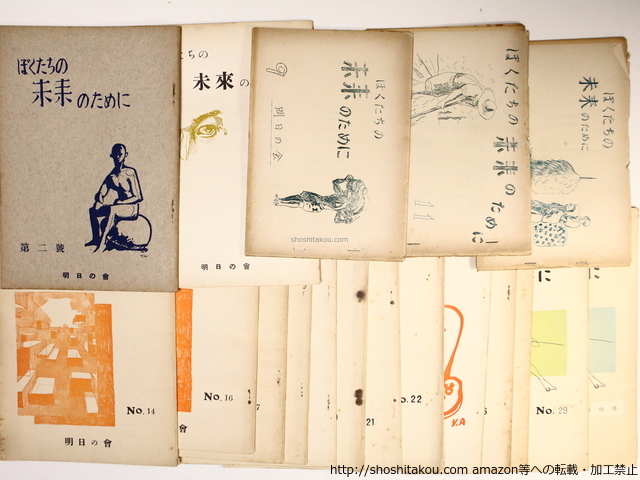 ぼくたちの
未来のために
第二號
明日の會
ちの
未來の
明日の會
ぼくたちの
未来のために
9
明日の会
shoshitakou.com
ぼくたちの未来のために
11
ぼくたちの
未来のために
No. 14
明日の會
No. 16
會
21
o. 22
Y.A
に
No. 29
に
http://shoshitakou.com amazon等への転載・加工禁止